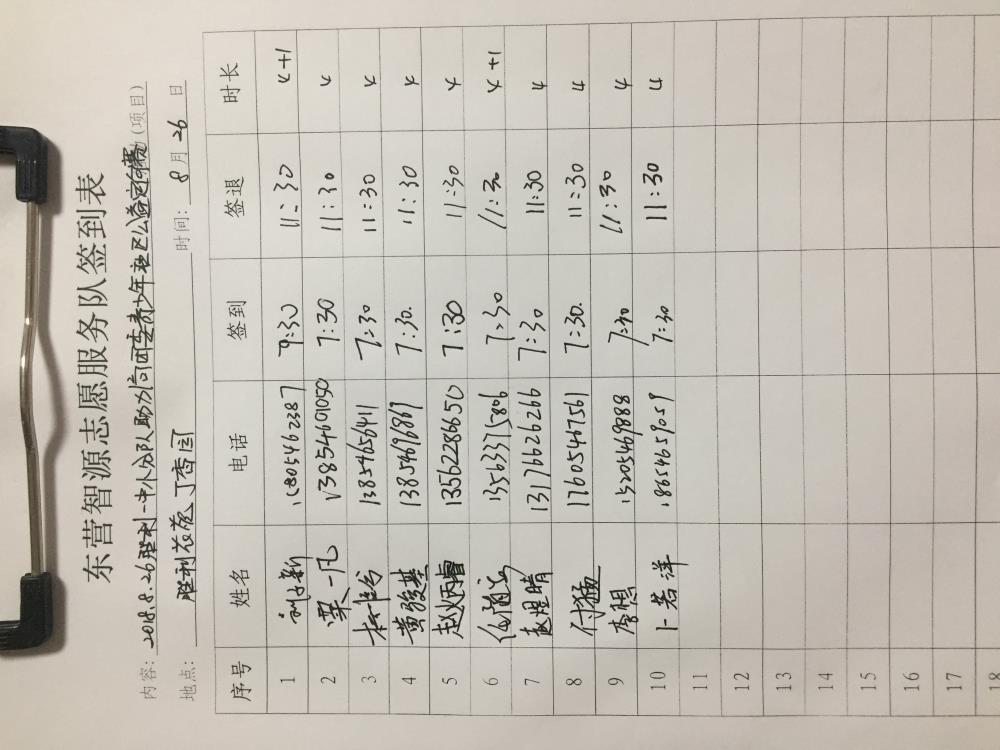 东营智源志愿服务队签到表
内容: 2018.8.26胜利一中小分队助力 青少年社区公益 (项目)
地点: 胜利花苑丁香园 时间: 8月26日
序号 姓名 电话 签到 签退 时长
1 11:30 4+1
2 栗一凡 7:30 11:30 4
3 13854656411 7:30 11:30 4
4 黄骏基 13854696869 7:30. 11:30 4
5 赵炳睿 13562286650 7:30 11:30 4
6 13563375806 7:30 11:30 4+1
7 赵煜晴 13176626266 7:30 11:30 4
8 17605467561 7:30. 11:30 4
9 李想 15205469888 7:30 11:30 4
10 卜若洋 18654659059 7:30 11:30 4
11
12
13
14
15
16
17
18